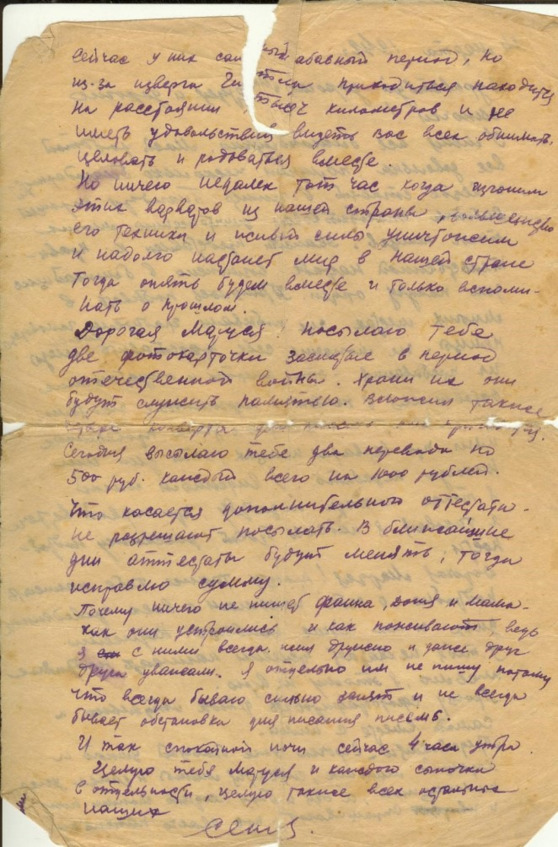 Сейчас у нас самый абасный период, но
из-за изверга Гитлера приходиться находится
на расстоянии тысяч километров и не
иметь удовольствия видеть вас всех обнимать,
целовать и радоваться вместе.
Но ничего недалек тот час когда изгоним
этих варваров из нашей страны,
его техники и живой силы уничтожим
и надолго настанет мир в нашей стране
Тогда опять будем вместе и только вспоми-
нать о прошлом.
Дорогая Маруся посылаю тебе
две фотокарточки заснятые в период
отечественной войны. Храни их они
будут служить памятью. Вложил также
конверта для писем
Сегодня высылаю тебе два перевода по
500 руб. каждый всего на 1000 рублей.
Что касается дополнительного аттестата-
не разрешают посылать. В ближайшие
дни аттестаты будут менять, тогда
исправлю сумму.
Почему ничего не пишет Фаина, Дося и мама-
как они устроились и как поживают, ведь
я с ними всегда жил дружно и даже друг
друга уважали. Я отдельно им не пишу, потому
что всегда бываю сильно занят и не всегда
бывает обстановка для писания письма.
И так спокойной ночи сейчас 4 часа утра.
Целую тебя Маруся и каждого сыночка
в отдельности, целую также всех остальных
наших